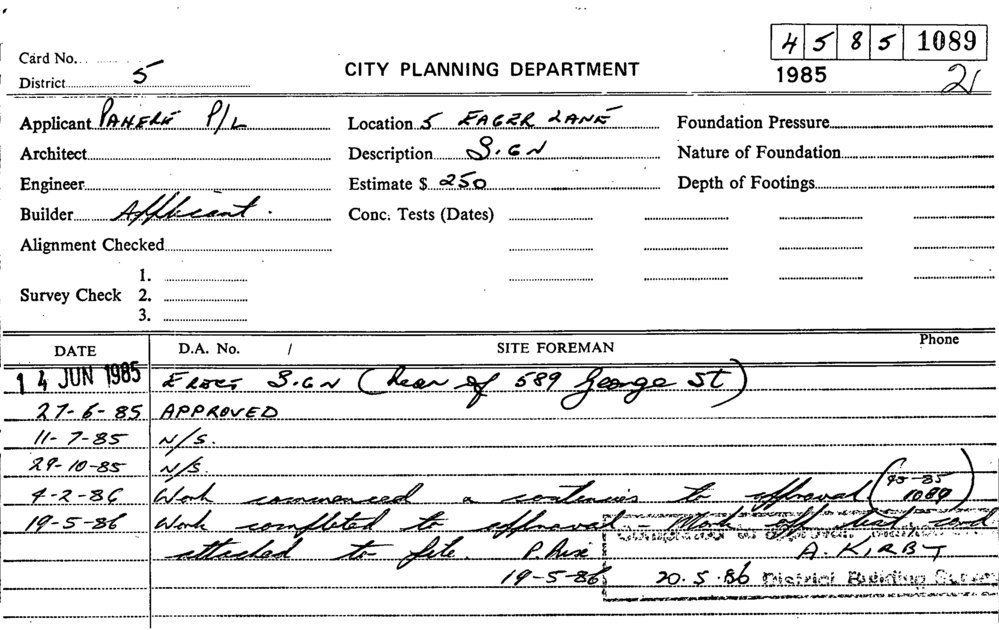 4 5 8 5 1089
Card No.
District 5
CITY PLANNING DEPARTMENT
1985
2
Applicant PAHERE P/L
Location 5 EAGER LANE
Foundation Pressure
Architect
Description SIGN
Nature of Foundation
Engineer
Estimate $ 250
Depth of Footings
Builder Applicant.
Conc. Tests (Dates)
Alignment Checked
Survey Check
1.
2.
3.
DATE D.A. No. / SITE FOREMAN Phone
14 JUN 1985 ERECT SIGN (Rear of 589 George St)
27-6-85 APPROVED
11-7-85 N/S.
29-10-85 N/S.
4-2-86 Work commenced & continues to approval (45-85 1089)
19-5-86 Work completed to approval - Mark off card
attached to file. P.
A. KIRBY
19-5-86 20.5.86 District Building